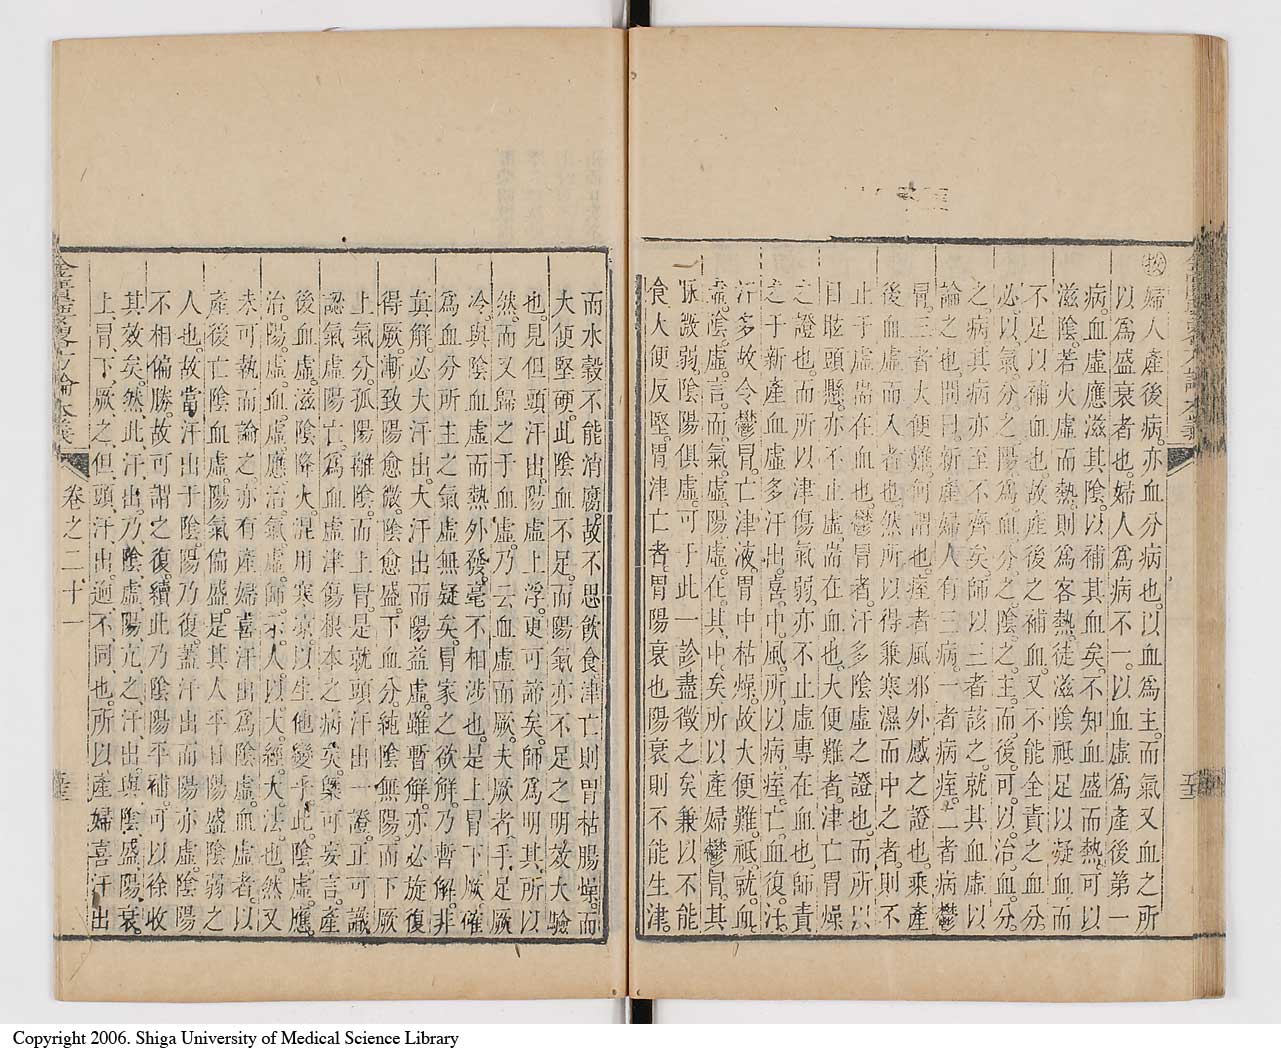 婦人産後病。亦血分病也。以血爲主。而氣又血之所
以爲盛衰者也。婦人爲病不一。以血虛爲産後第一
病。血虛應滋其陰。以補其血矣。不知血盛而熱。可以
滋陰。若火虛而熱。則爲客熱。徒滋陰祇足以凝血。而
不足以補血也。故産後之補血。又不能全責之血分。
必以氣分之陽。爲血分之陰之主。而後可以治血分
之病。其病亦至不齊矣。師以三者該之。就其血虛以
論之也。問曰。新産婦人有三病。一者病痙。二者病鬱
冒。三者大便難。何謂也。痙者風邪外感之證也。乘産
後血虛而入者也。然所以得兼寒濕而中之者。則不
止于虛耑在血也。鬱冒者。汗多陰虛之證也。而所以
目眩頭懸。亦不止血虛。耑在血也。大便難者。津亡胃燥
之證也。而所以津傷氣弱。亦不止虛專在血也。師責
之于新産血虛。多汗出。喜中風。所以病痙。亡血復汗。
汗多故令鬱冒。亡津液胃中枯燥。故大便難。祇就血
虛陰虛言。而氣虛陽虛。在其中矣。所以産婦鬱冒。其
脉微弱。陰陽俱虛。可于此一診盡徵之矣。兼以不能
食大便反堅。胃津亡者。胃陽衰也。陽衰則不能生津。
而水穀不能消腐。故不思飲食。津亡則胃枯腸燥。而
大便堅硬。此陰血不足。而陽氣亦不足之明效大驗
也。見但頭汗出。陽虛上浮。更可諦矣。師爲明其所以
然。而又歸之于血虛。乃云血虛而厥。夫厥者。手足厥
冷。與陰血虛而熱外發。毫不相涉也。是上冒下厥。確
爲血分所主之氣虛無疑矣。冒家之欲解。乃暫解。非
眞解。必大汗出。大汗出而陽益虛。雖暫解。亦必旋復
得厥。漸致陽愈微。陰愈盛。下血分。純陰無陽。而下厥
上氣分。孤陽離陰。而上冒。是就頭汗出一證。正可識
認氣虛陽亡。爲血虛津傷根本之病矣。槩可妄言。産
後血虛。滋陰降火。混用寒凉。以生他變乎。此陰虛。應
治陽虛。血虛。應治氣虛。師示人以大經大法也。然又
未可執而論之。亦有産婦喜汗出。爲陰虛血虛者。以
産後亡陰血虛。陽氣偏盛。是其人平日陽盛陰弱之
人也。故當汗出于陰陽乃復。蓋汗出而陽亦虛。陰陽
不相偏勝。故可謂之復。續此乃陰陽平補。可以徐收
其效矣。然此汗出。乃陰虛陽亢之汗出。與陰盛陽衰
上冒下厥之但頭汗出。迥不同也。所以産婦喜汗出
卷之二十一
Copyright 2006. Shiga University of Medical Science Library